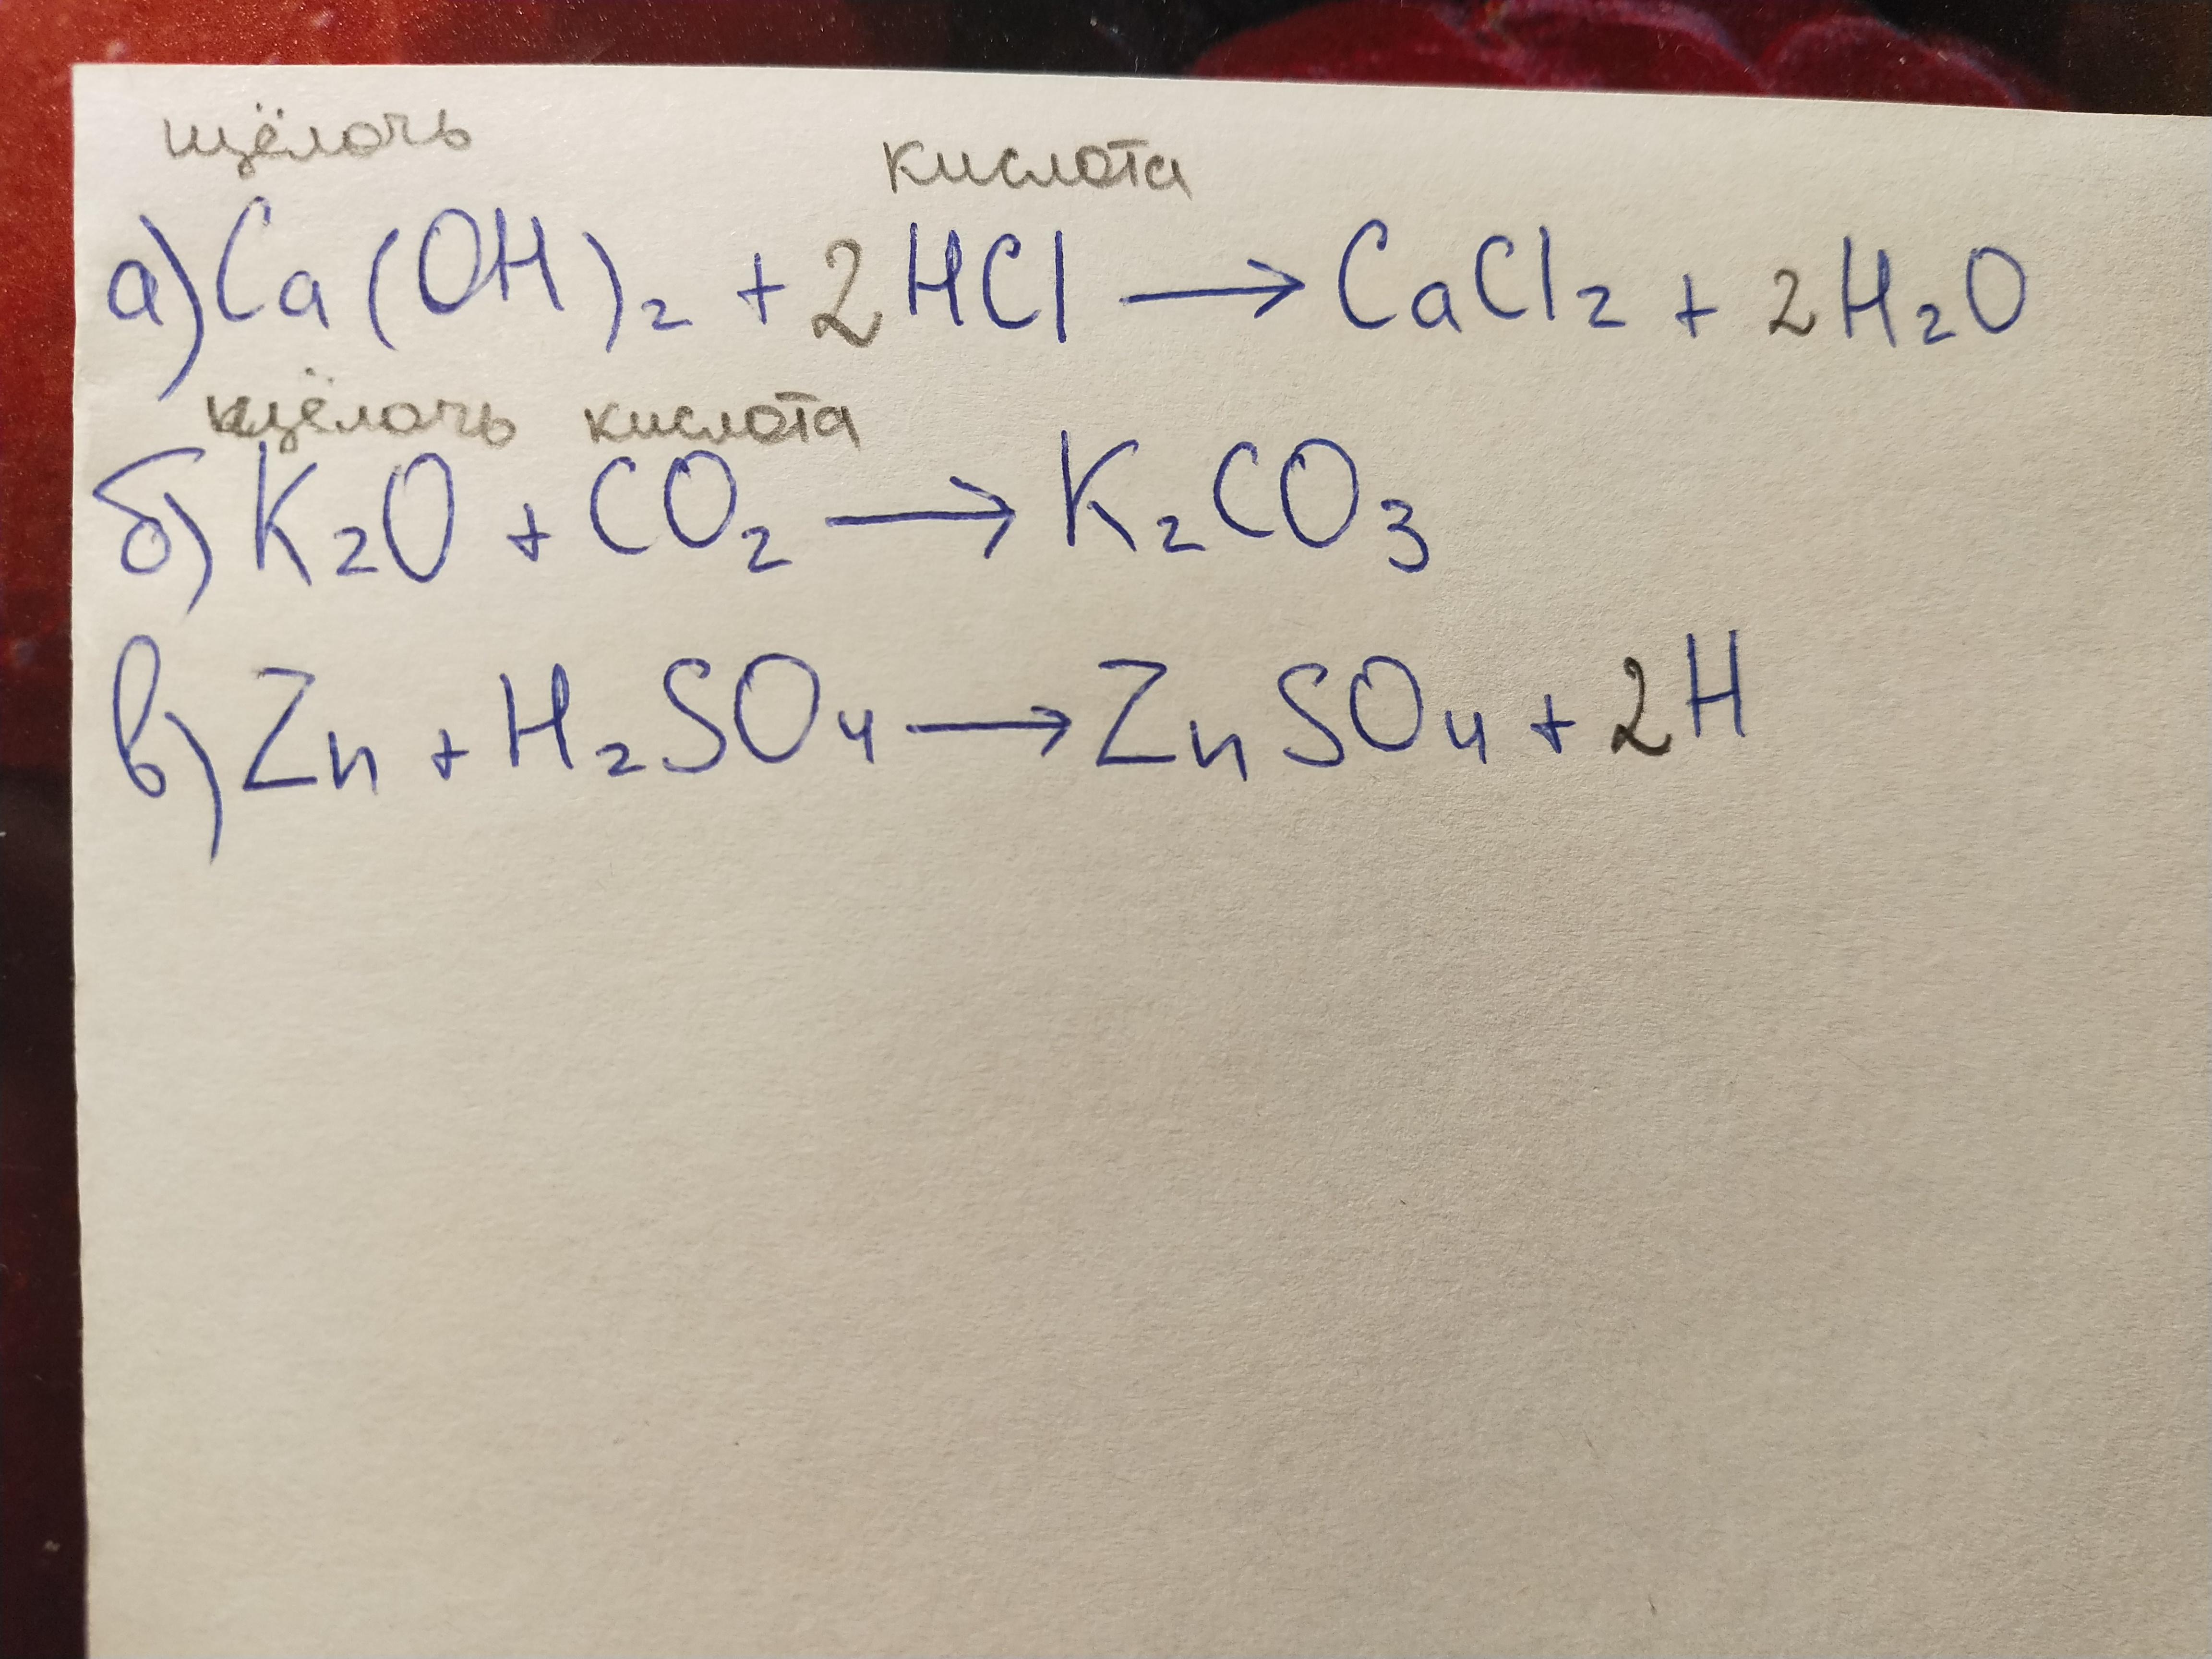 щёлочь кислота
а) Ca(OH)₂ + 2HCl → CaCl₂ + 2H₂O
щёлочь кислота
б) K₂O + CO₂ → K₂CO₃
в) Zn + H₂SO₄ → ZnSO₄ + 2H